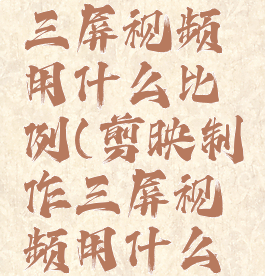 三屏视频
用什么比
例(剪映制
作三屏视
频用什么